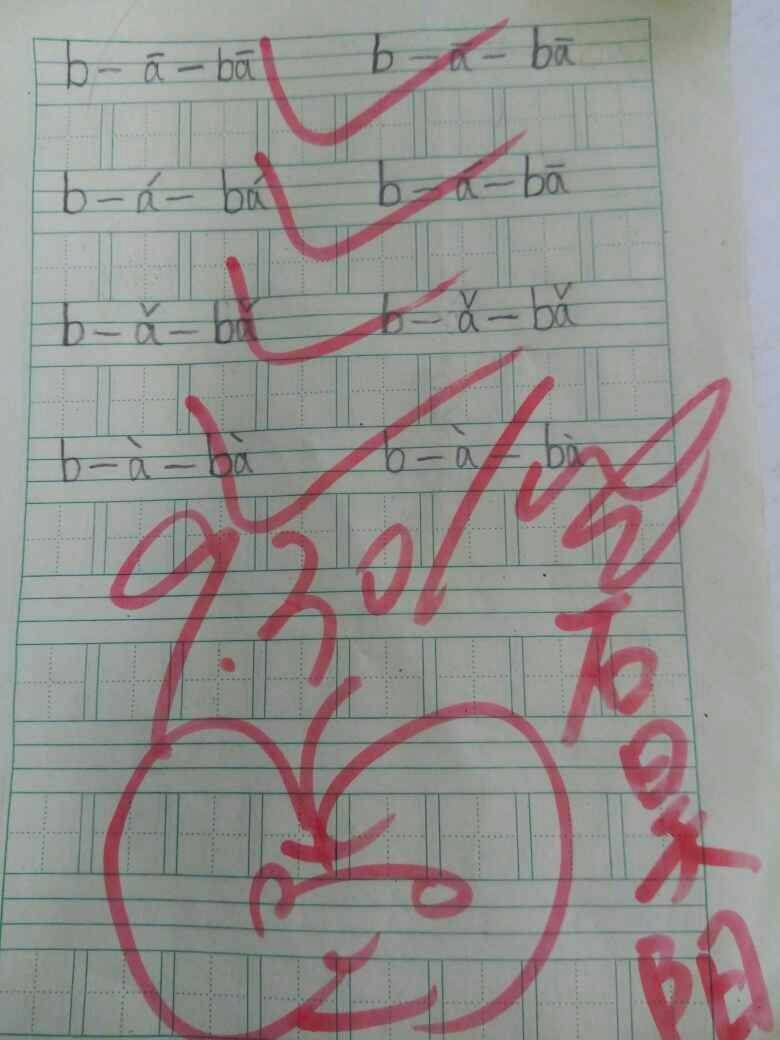 b-ā-bā b-ā-bā
b-á-bá b-á-bā
b-ǎ-bǎ b-ǎ-bǎ
b-à-bà b-à-bà
9.30/
石昊阳